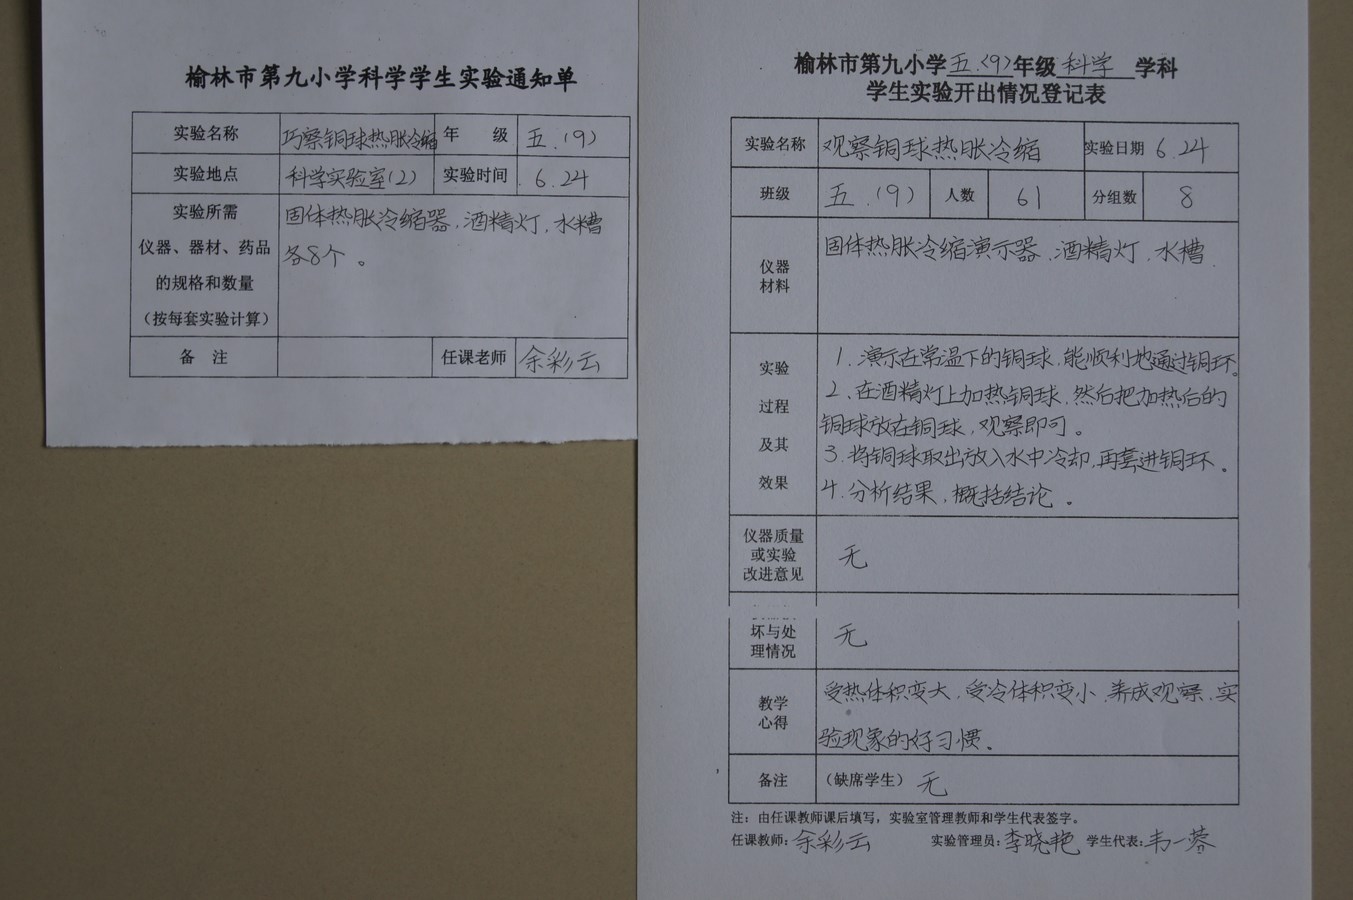 榆林市第九小学科学学生实验通知单
实验名称 巧察铜球热胀冷缩 年 级 五.(9)
实验地点 科学实验室(2) 实验时间 6.24
实验所需
仪器、器材、药品
的规格和数量
(按每套实验计算)
固体热胀冷缩器,酒精灯,水糟
各8个。
备 注 任课老师 余彩云
榆林市第九小学五.(9)年级科学学科
学生实验开出情况登记表
实验名称 观察铜球热胀冷缩 实验日期 6.24
班级 五.(9) 人数 61 分组数 8
仪器
材料
固体热胀冷缩演示器、酒精灯、水槽
实验
过程
及其
效果
1、演示在常温下的铜球,能顺利地通过铜环。
2、在酒精灯上加热铜球,然后把加热后的
铜球放在铜球,观察即可。
3.将铜球取出放入水中冷却,再套进铜环。
4.分析结果,概括结论。
仪器质量
或实验
改进意见
无
坏与处
理情况
无
教学
心得
受热体积变大,受冷体积变小,养成观察,实
验现象的好习惯、
备注 (缺席学生) 无
注:由任课教师课后填写,实验室管理教师和学生代表签字。
任课教师:余彩云 实验管理员:李晓艳 学生代表:韦一蓉